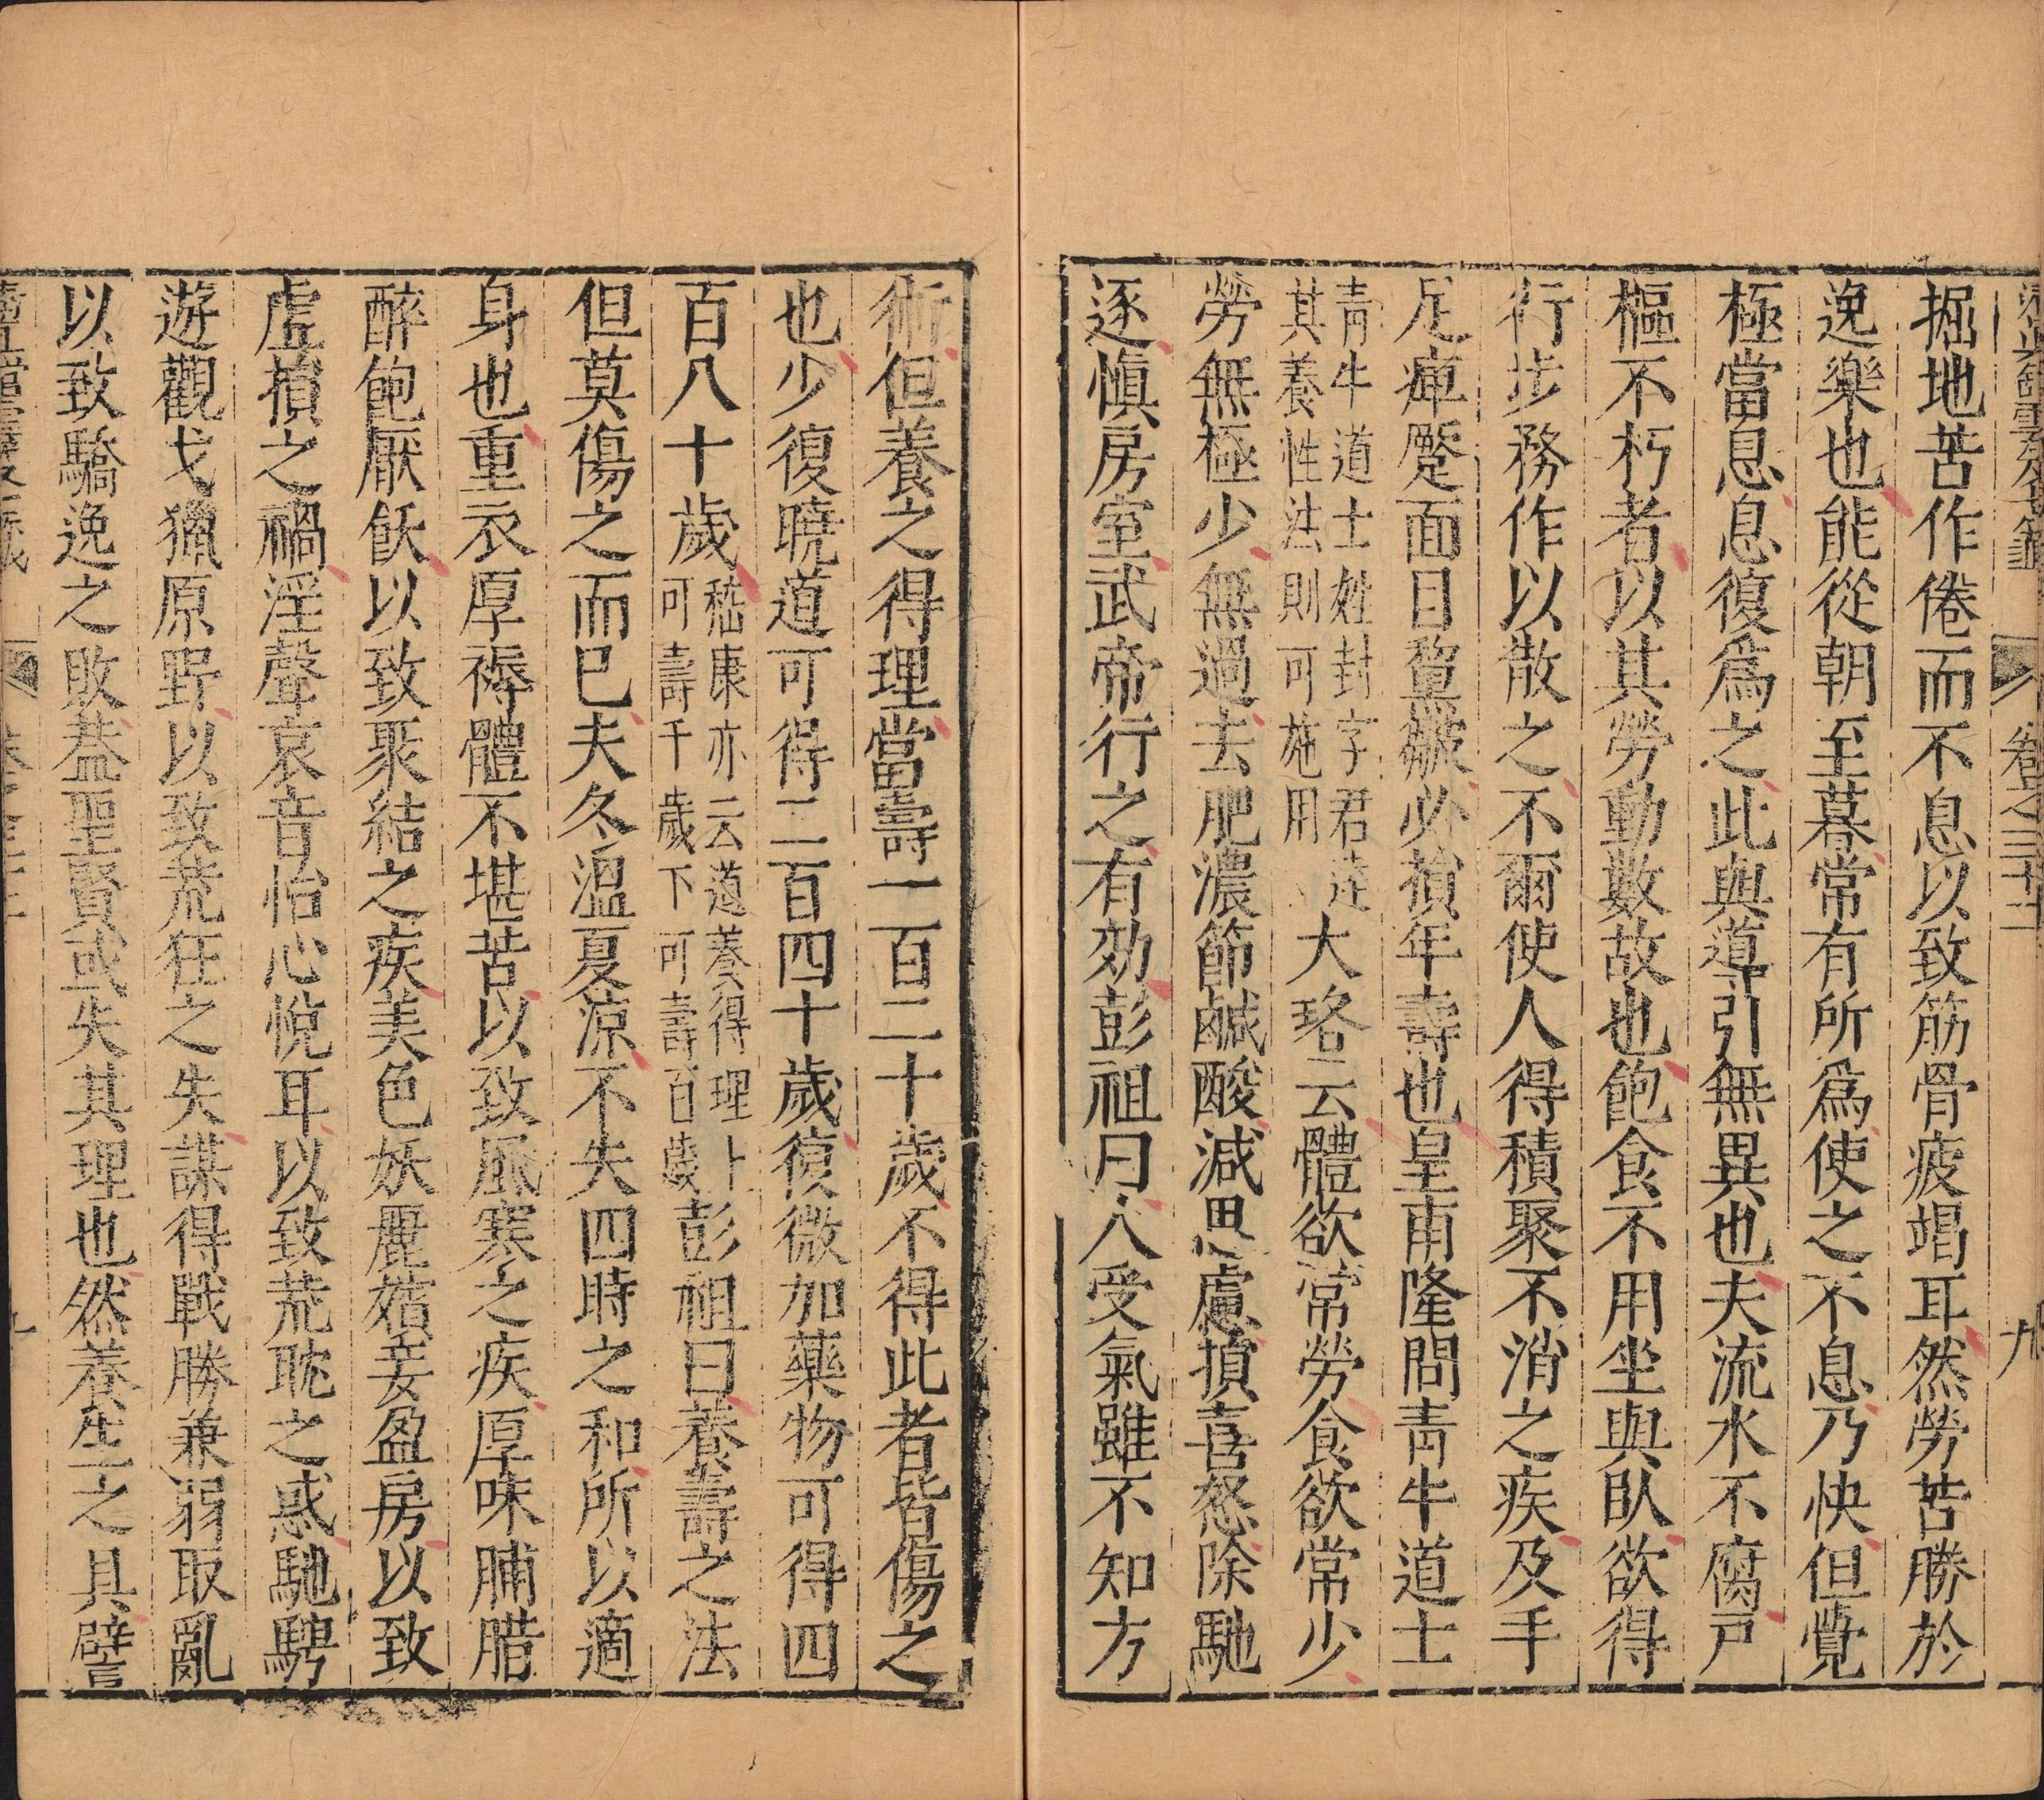 卷之三十二 九
掘地苦作倦而不息以致筋骨疲竭耳然勞苦勝於
逸樂也能從朝至暮常有所爲使之不息乃快但覺
極當息息復爲之此與導引無異也夫流水不腐戸
樞不朽者以其勞動數故也飽食不用坐與臥欲得
行步務作以散之不爾使人得積聚不消之疾及手
足痺蹷面目黧皺必損年壽也皇甫隆問青牛道士
青牛道士姓封字君達
其養性法則可施用
大略云體欲常勞食欲常少
勞無極少無過去肥濃節鹹酸減思慮損喜怒除馳
逐慎房室武帝行之有効彭祖曰人受氣雖不知方
術但養之得理當壽一百二十歲不得此者皆傷之
也少復曉道可得二百四十歲復微加藥物可得四
百八十歲
嵇康亦云道養得理上
可壽千歲下可壽百歲
彭祖曰養壽之法
但莫傷之而已夫冬溫夏涼不失四時之和所以適
身也重衣厚褥體不堪苦以致風寒之疾厚味脯腊
醉飽厭飫以致聚結之疾美色妖麗嬪妾盈房以致
虛損之禍淫聲哀音怡心悅耳以致荒耽之惑馳騁
遊觀弋獵原野以致荒狂之失謀得戰勝兼弱取亂
以致驕逸之敗葢聖賢或失其理也然養生之具譬